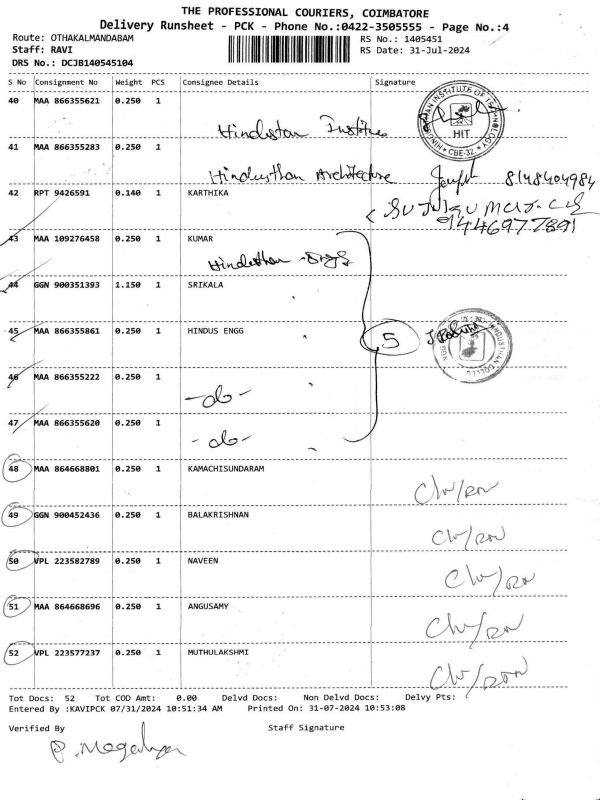 THE PROFESSIONAL COURIERS, COIMBATORE
Delivery Runsheet - PCK - Phone No.:0422-3505555 - Page No.:4
Route: OTHAKALMANDABAM RS No.: 1405451
Staff: RAVI RS Date: 31-Jul-2024
DRS No.: DCJB140545104
S No Consignment No Weight PCS Consignee Details Signature
40 MAA 866355621 0.250 1
Hindustan Institute
HIT
CBE-32
41 MAA 866355283 0.250 1
Hindusthan Architecture 8148404984
42 RPT 9426591 0.140 1 KARTHIKA
9446977891
43 MAA 109276458 0.250 1 KUMAR
Hindusthan Engg
44 GGN 900351393 1.150 1 SRIKALA
45 MAA 866355861 0.250 1 HINDUS ENGG 5
46 MAA 866355222 0.250 1
-do-
47 MAA 866355620 0.250 1
-do-
48 MAA 864668801 0.250 1 KAMACHISUNDARAM
49 GGN 900452436 0.250 1 BALAKRISHNAN
50 VPL 223582789 0.250 1 NAVEEN
51 MAA 864668696 0.250 1 ANGUSAMY
52 VPL 223577237 0.250 1 MUTHULAKSHMI
Tot Docs: 52 Tot COD Amt: 0.00 Delvd Docs: Non Delvd Docs: Delvy Pts:
Entered By :KAVIPCK 07/31/2024 10:51:34 AM Printed On: 31-07-2024 10:53:08
Verified By Staff Signature